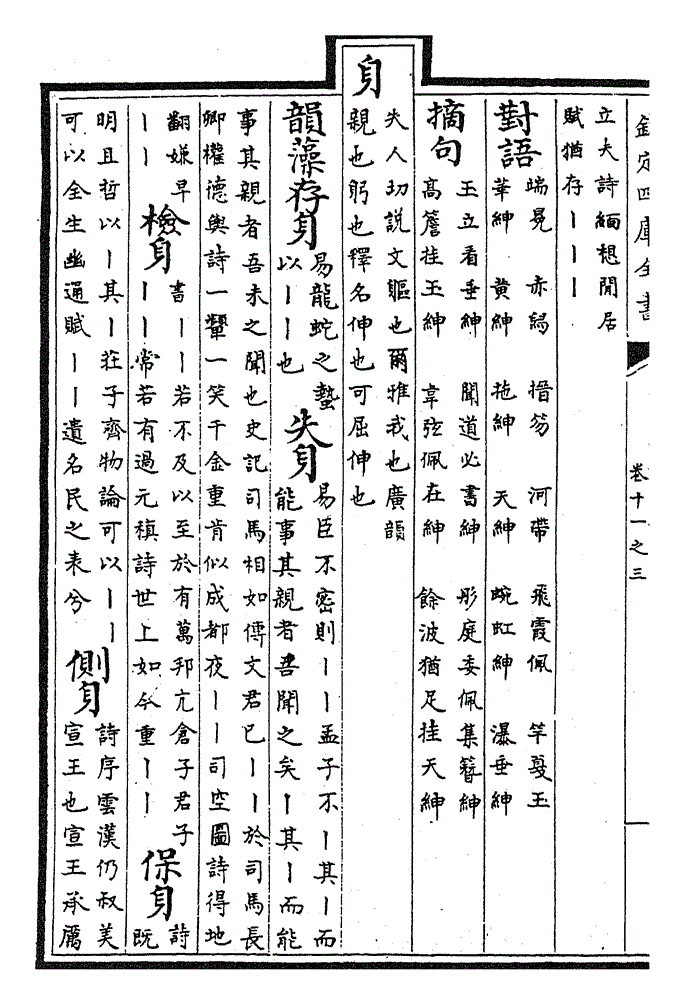 欽定四庫全書
卷十一之三
立夫詩緬想閒居
賦猶存｜｜｜
對語
端冕 赤舄 搢笏 河帶 飛霞佩 竿戞玉
華紳 黄紳 拖紳 天紳 蜿虹紳 瀑垂紳
摘句
玉立看垂紳 聞道必書紳 彤庭委佩集簪紳
高簷挂玉紳 韋弦佩在紳 餘波猶足挂天紳
身
失人切說文軀也爾雅我也廣韻
親也躬也釋名伸也可屈伸也
韻藻存身
易龍蛇之蟄
以｜｜也
失身
易臣不密則｜｜孟子不｜其｜而
能事其親者吾聞之矣｜其｜而能
事其親者吾未之聞也史記司馬相如傳文君已｜｜於司馬長
卿權德輿詩一顰一笑千金重肯似成都夜｜｜司空圖詩得地
翻嫌早
｜｜
檢身
書｜｜若不及以至於有萬邦亢倉子君子
｜｜常若有過元稹詩世上如今重｜｜
保身
詩
既
明且哲以｜其｜莊子齊物論可以｜｜
可以全生幽通賦｜｜遺名民之表兮
側身
詩序雲漢仍叔美
宣王也宣王承厲